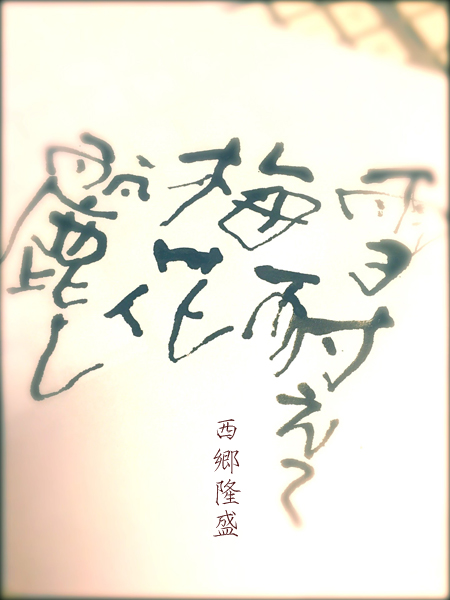 雪耐えて
梅花
麗し
西郷隆盛